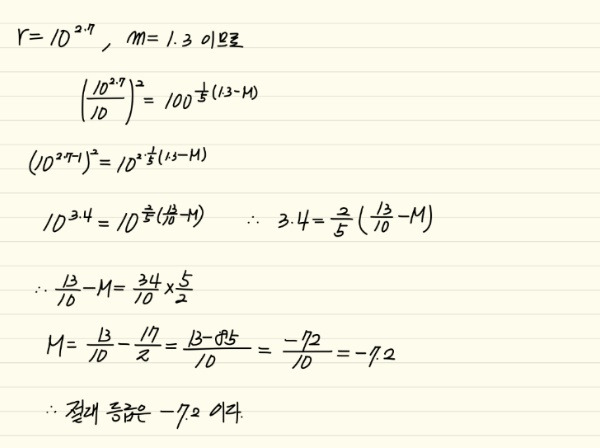 r = 10^2.7, m = 1.3 이므로
(10^2.7/10)^2 = 100^(1/5(1.3-M))
(10^(2.7-1))^2 = 10^(2·1/5(1.3-M))
10^3.4 = 10^(2/5(13/10-M)) ∴ 3.4 = 2/5(13/10-M)
∴ 13/10 - M = 34/10 × 5/2
M = 13/10 - 17/2 = (13-85)/10 = -72/10 = -7.2
∴ 절대 등급은 -7.2 이다.